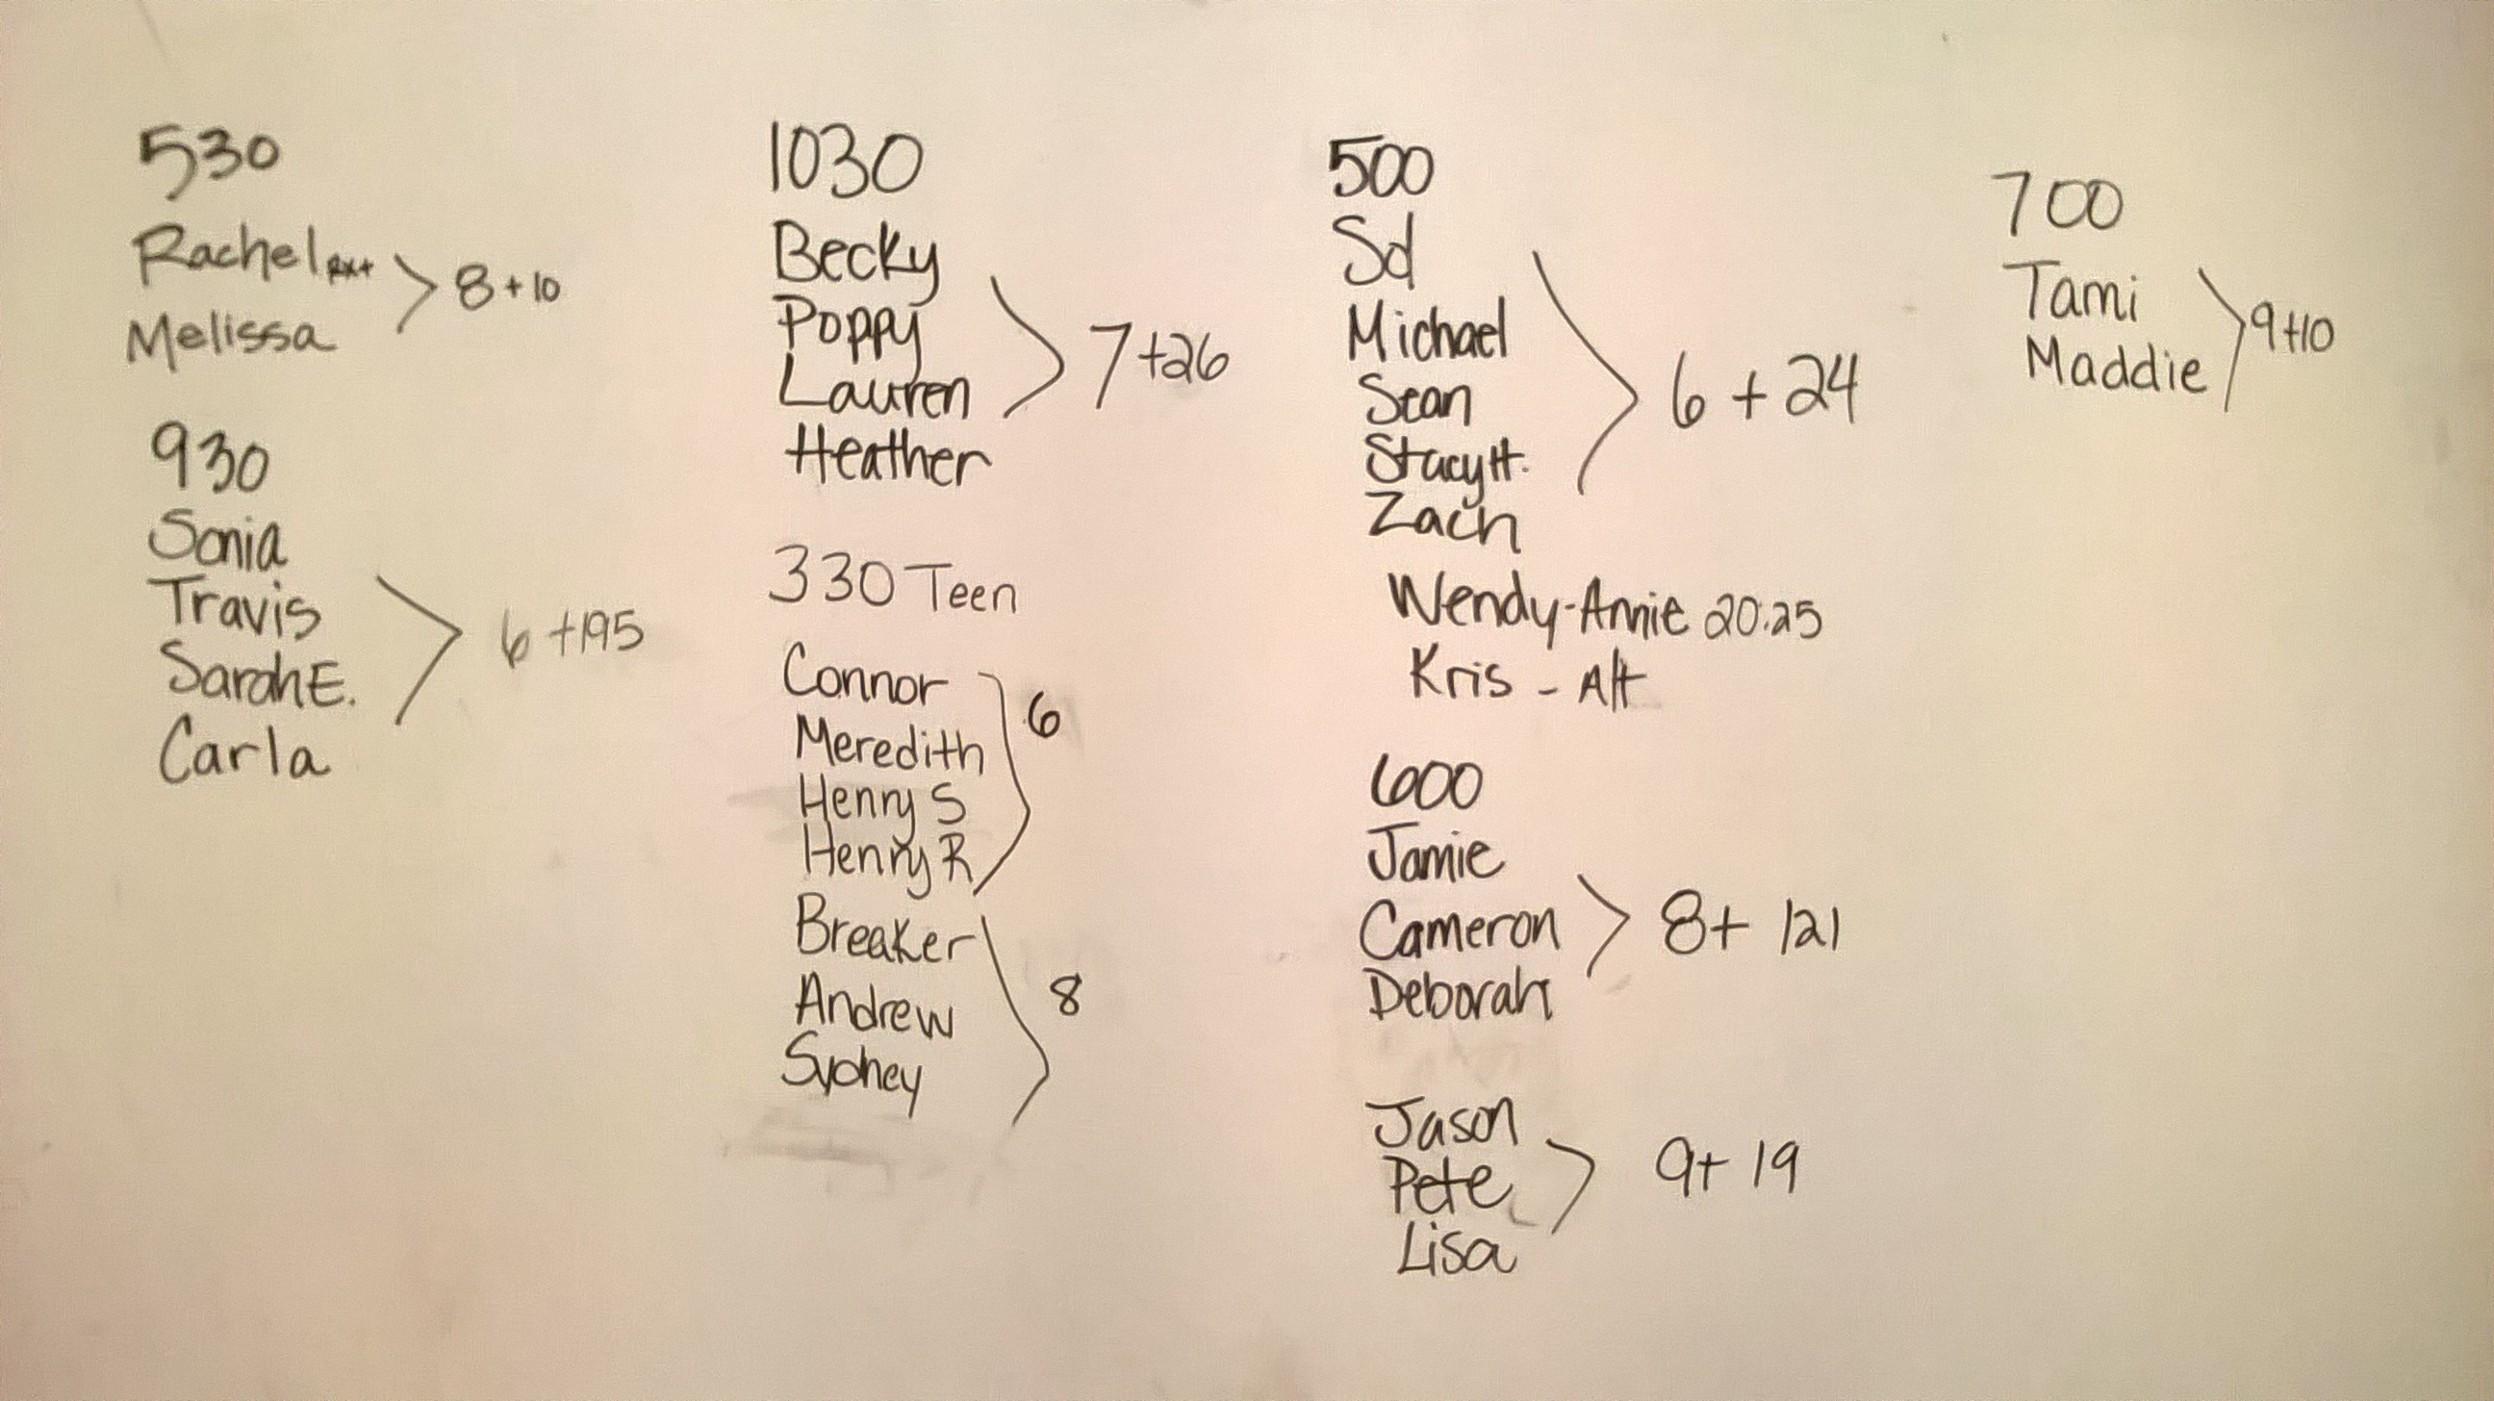 530
Rachel RX+
Melissa
8+10
930
Sonia
Travis
Sarah E.
Carla
6+195
1030
Becky
Poppy
Lauren
Heather
7+26
330 Teen
Connor
Meredith
Henry S
Henry R
6
Breaker
Andrew
Sydney
8
500
Sd
Michael
Sean
Stacy H.
Zach
6+24
Wendy-Annie 20:25
Kris - Alt
600
Jamie
Cameron
Deborah
8+ 121
Jason
Pete
Lisa
9+ 19
700
Tami
Maddie
9+10